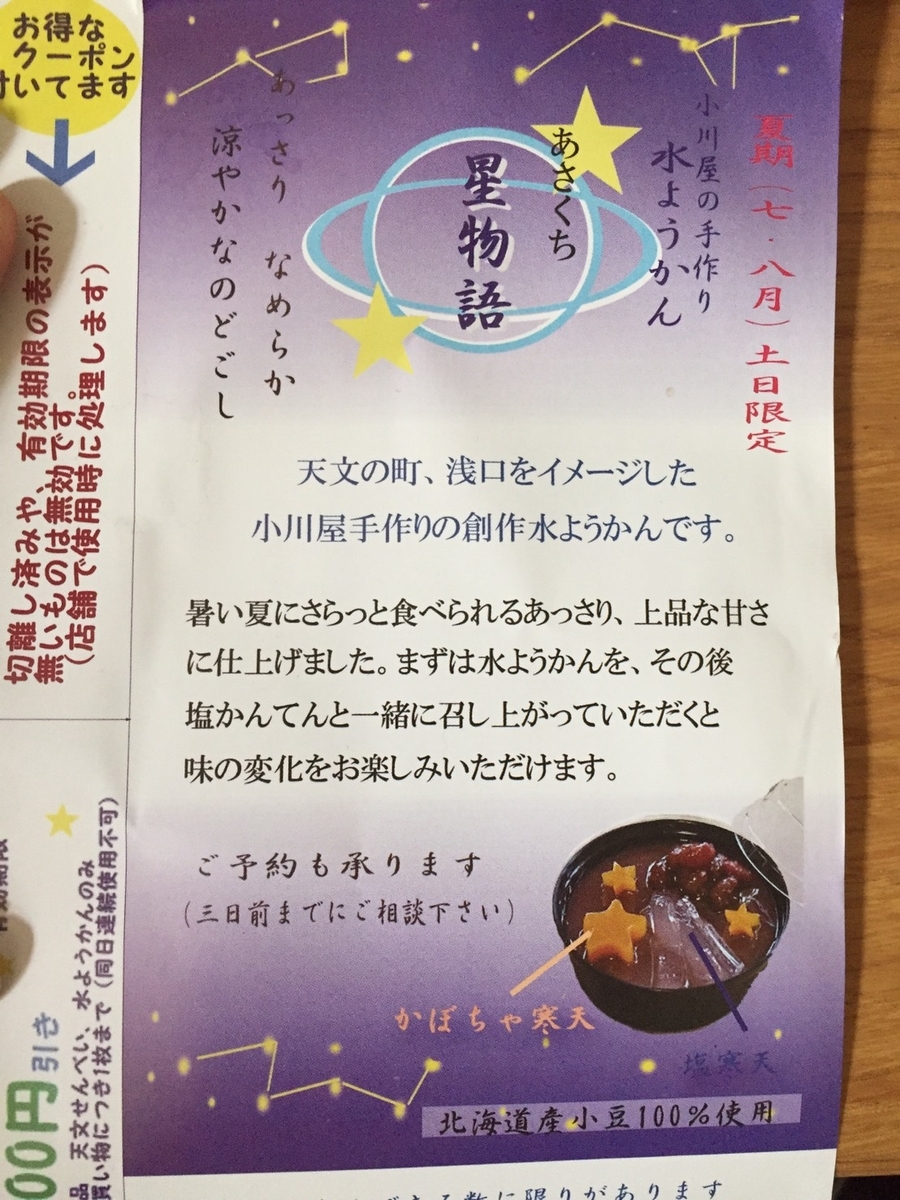 夏期（七・八月）土日限定
小川屋の手作り
水ようかん
あさくち
星物語
あっさり なめらか
涼やかなのどごし
天文の町、浅口をイメージした
小川屋手作りの創作水ようかんです。
暑い夏にさらっと食べられるあっさり、上品な甘さ
に仕上げました。まずは水ようかんを、その後
塩かんてんと一緒に召し上がっていただくと
味の変化をお楽しみいただけます。
ご予約も承ります
（三日前までにご相談下さい）
かぼちゃ寒天
塩寒天
北海道産小豆100％使用
数に限りがあります
お得な
クーポン
付いてます
切離し済みや、有効期限の表示が
無いものは無効です。
（店舗で使用時に処理します）
00円引き
品 天文せんべい、水ようかんのみ
買い物につき1枚まで（同日連続使用不可）